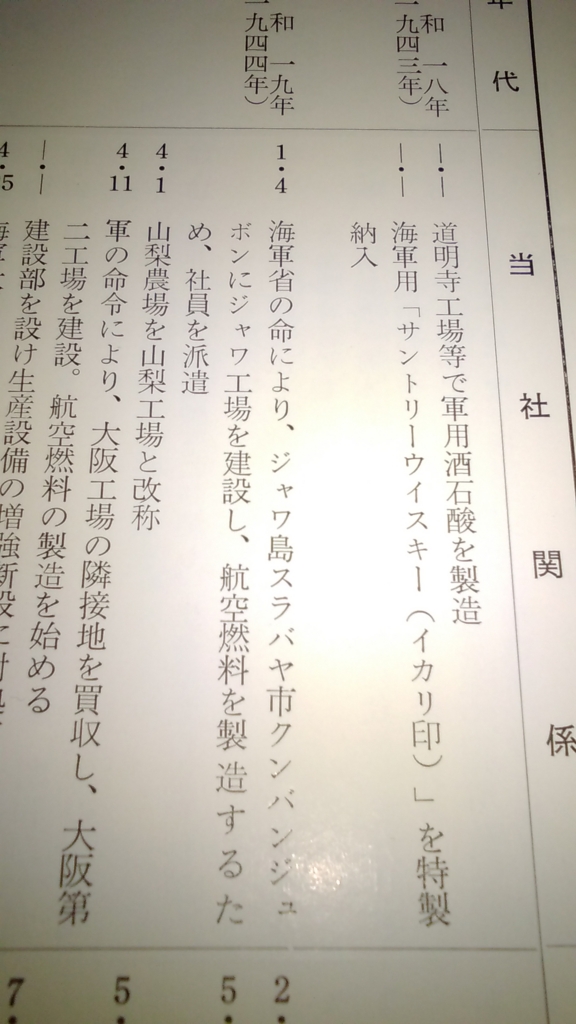 年代
当社関係
和一八年
九四三年）
—・—
道明寺工場等で軍用酒石酸を製造
—・—
海軍用「サントリーウイスキー（イカリ印）」を特製
納入
和一九年
一九四四年）
1・4
海軍省の命により、ジャワ島スラバヤ市クンバンジュ
ボンにジャワ工場を建設し、航空燃料を製造するた
め、社員を派遣
4・1
山梨農場を山梨工場と改称
4・11
軍の命令により、大阪工場の隣接地を買収し、大阪第
二工場を建設。航空燃料の製造を始める
—・—
建設部を設け生産設備の増強新設に対処
4・5
海軍
2・
5・
5・
7・